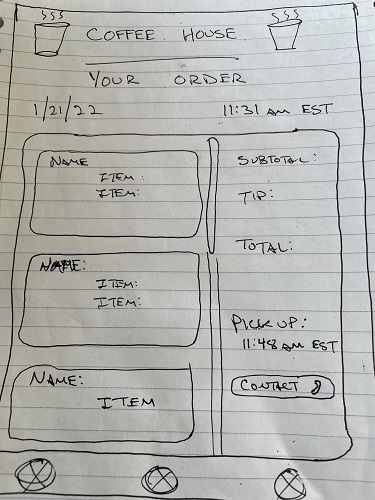 COFFEE HOUSE
YOUR ORDER
1/21/22 11:31 am EST
NAME
ITEM:
ITEM:
NAME:
ITEM:
ITEM:
NAME:
ITEM
SUBTOTAL:
TIP:
TOTAL:
PICK UP:
11:48 am EST
CONTACT